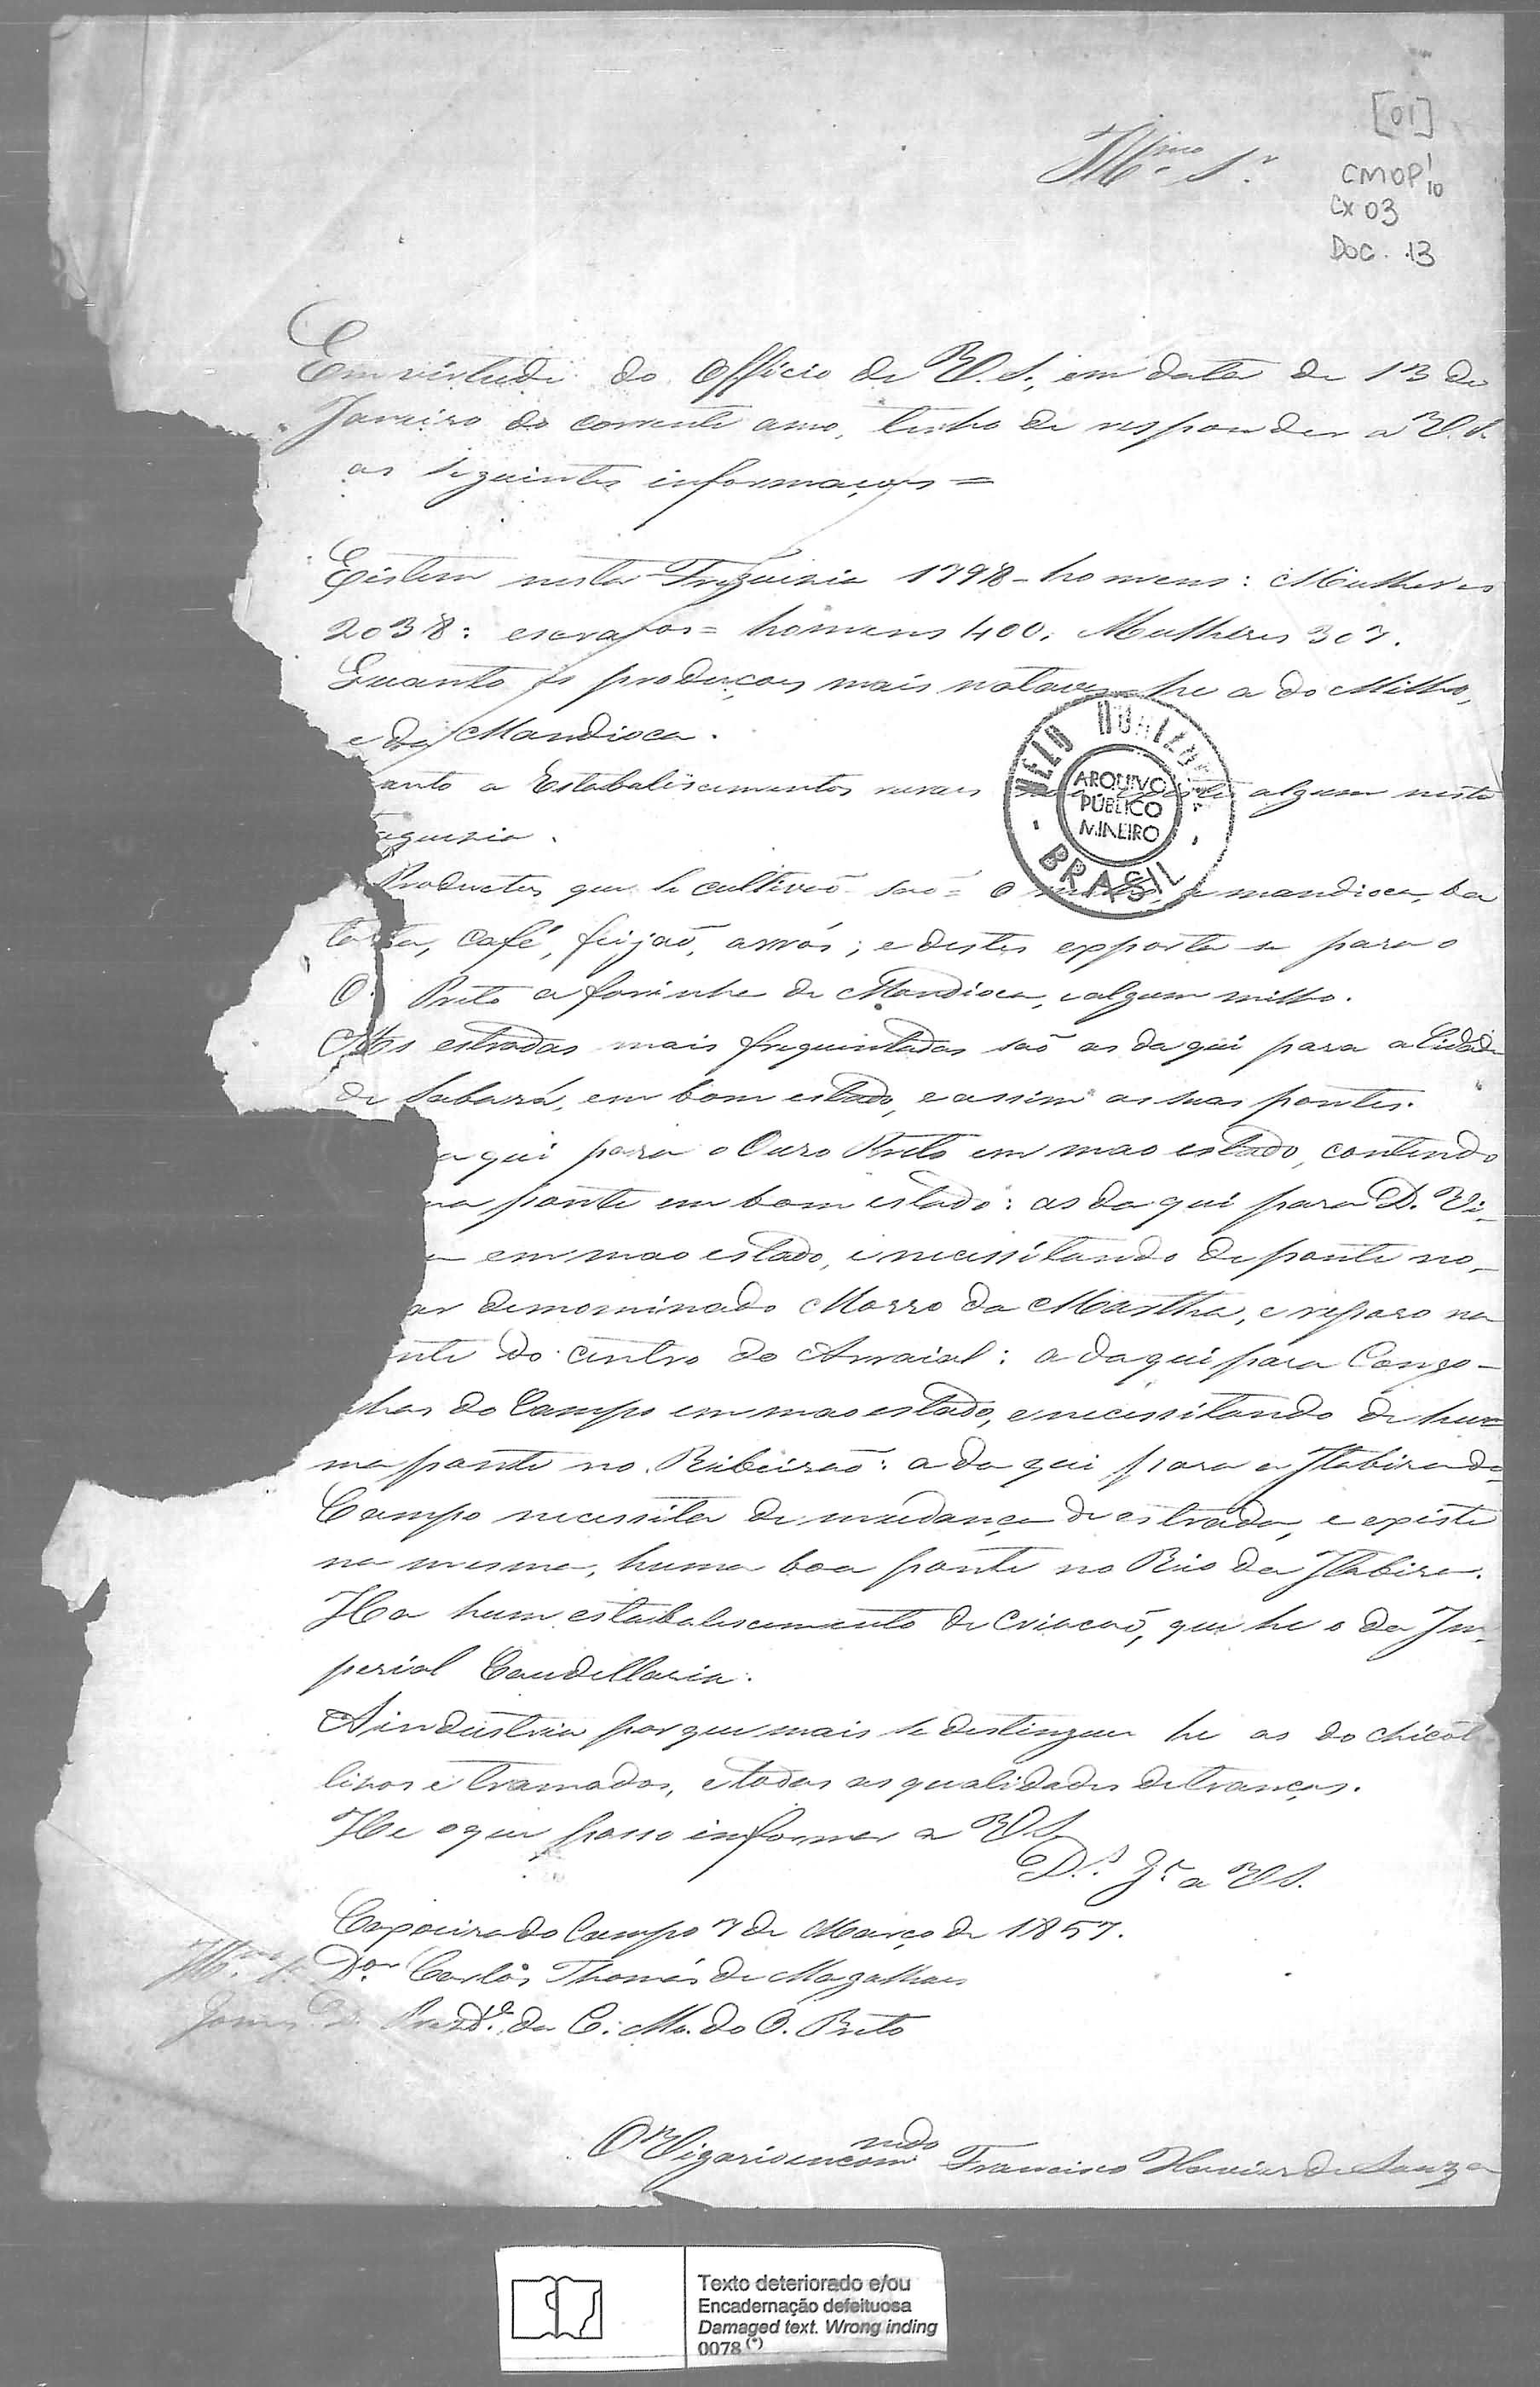 [01]
Illmo. Sr.
CMOP 1/10
CX 03
DOC. 13
Em virtude do Officio de V. S., em data de 13 de
Janeiro do corrente anno, tenho de responder a V. S.
as seguintes informaçoes =
Existem nesta Freguezia 1798 - homens: Mulheres
2038: escravos = homens 400, Mulheres 307.
Quanto as produçoes mais notaveis he a do Milho,
e da Mandioca.
anto a Estabaliscimentos ruraes algum nesta
eguezia.
Productos que se cultivaõ saõ = o milho, a mandioca, ba
tata, café, feijaõ, arrós; e destes exporta se para o
O. Preto a farinha de Mandioca, e algum milho.
As estradas mais frequentadas saõ as da qui para a Cidade
de Sabará, em bom estado, e assim as suas pontes.
a qui para o Ouro Preto em mao estado, contendo
ma ponte em bom estado: as da qui para D. Vi-
em mao estado, e necessitando de ponte no
ar denominado Morro da Martha, e reparo na
nte do centro do Arraial: a da qui para Congo-
nhas do Campo em mao estado, e necessitando de hu
ma ponte no Ribeiraõ: a da qui para a Itabira do
Campo necessita de mudança de estrada, e existe
na mesma, huma boa ponte no Rio da Itabira.
Ha hum estabaliscimento de Criacaõ, que he o da Im-
perial Caudellaria.
A industria por que mais se destingue he as do chicot
lizos e tramados, e todas as qualidades de tranças.
He o que posso informar a V. S.
Ds. Ge. a V. S.
Caxoeira do Campo 7 de Março de 1857.
Illmo. Sr. Dor. Carlos Thomás de Magalhaes
Gomes D. Prezde. da C. Ma. do O. Preto
O Vigario encomndo Francisco Xavier de Souza
BELO HORIZONTE
ARQUIVO
PÚBLICO
MINEIRO
BRASIL
Texto deteriorado e/ou
Encadernação defeituosa
Damaged text. Wrong inding
0078 (*)